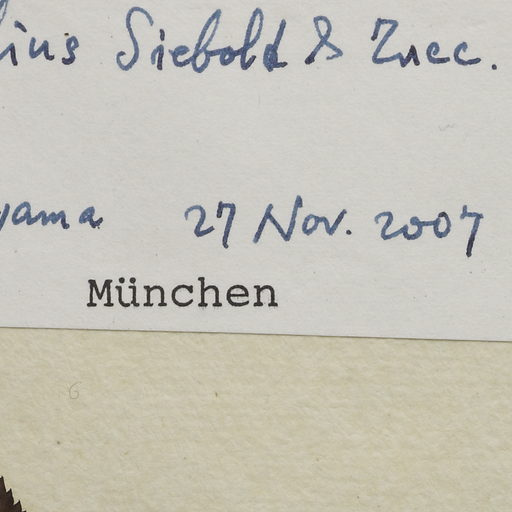 lius Siebold & Zucc.
yama 27 Nov. 2007
München